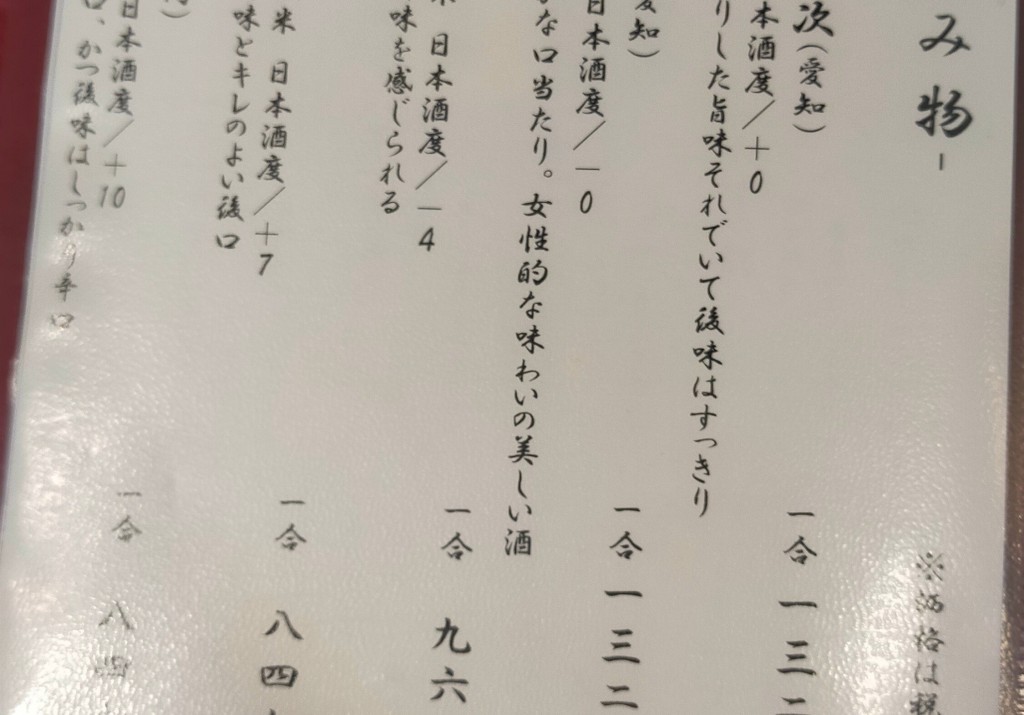 み物-
※価格は税
次(愛知)
本酒度/+0
りした旨味それでいて後味はすっきり
一合 一三二
愛知)
日本酒度/-0
かな口当たり。女性的な味わいの美しい酒
一合 一三二
米 日本酒度/-4
味を感じられる
一合 九六
米 日本酒度/+7
味とキレのよい後口
一合 八四
日本酒度/+10
口、かつ後味はしっかり辛口
一合 八四